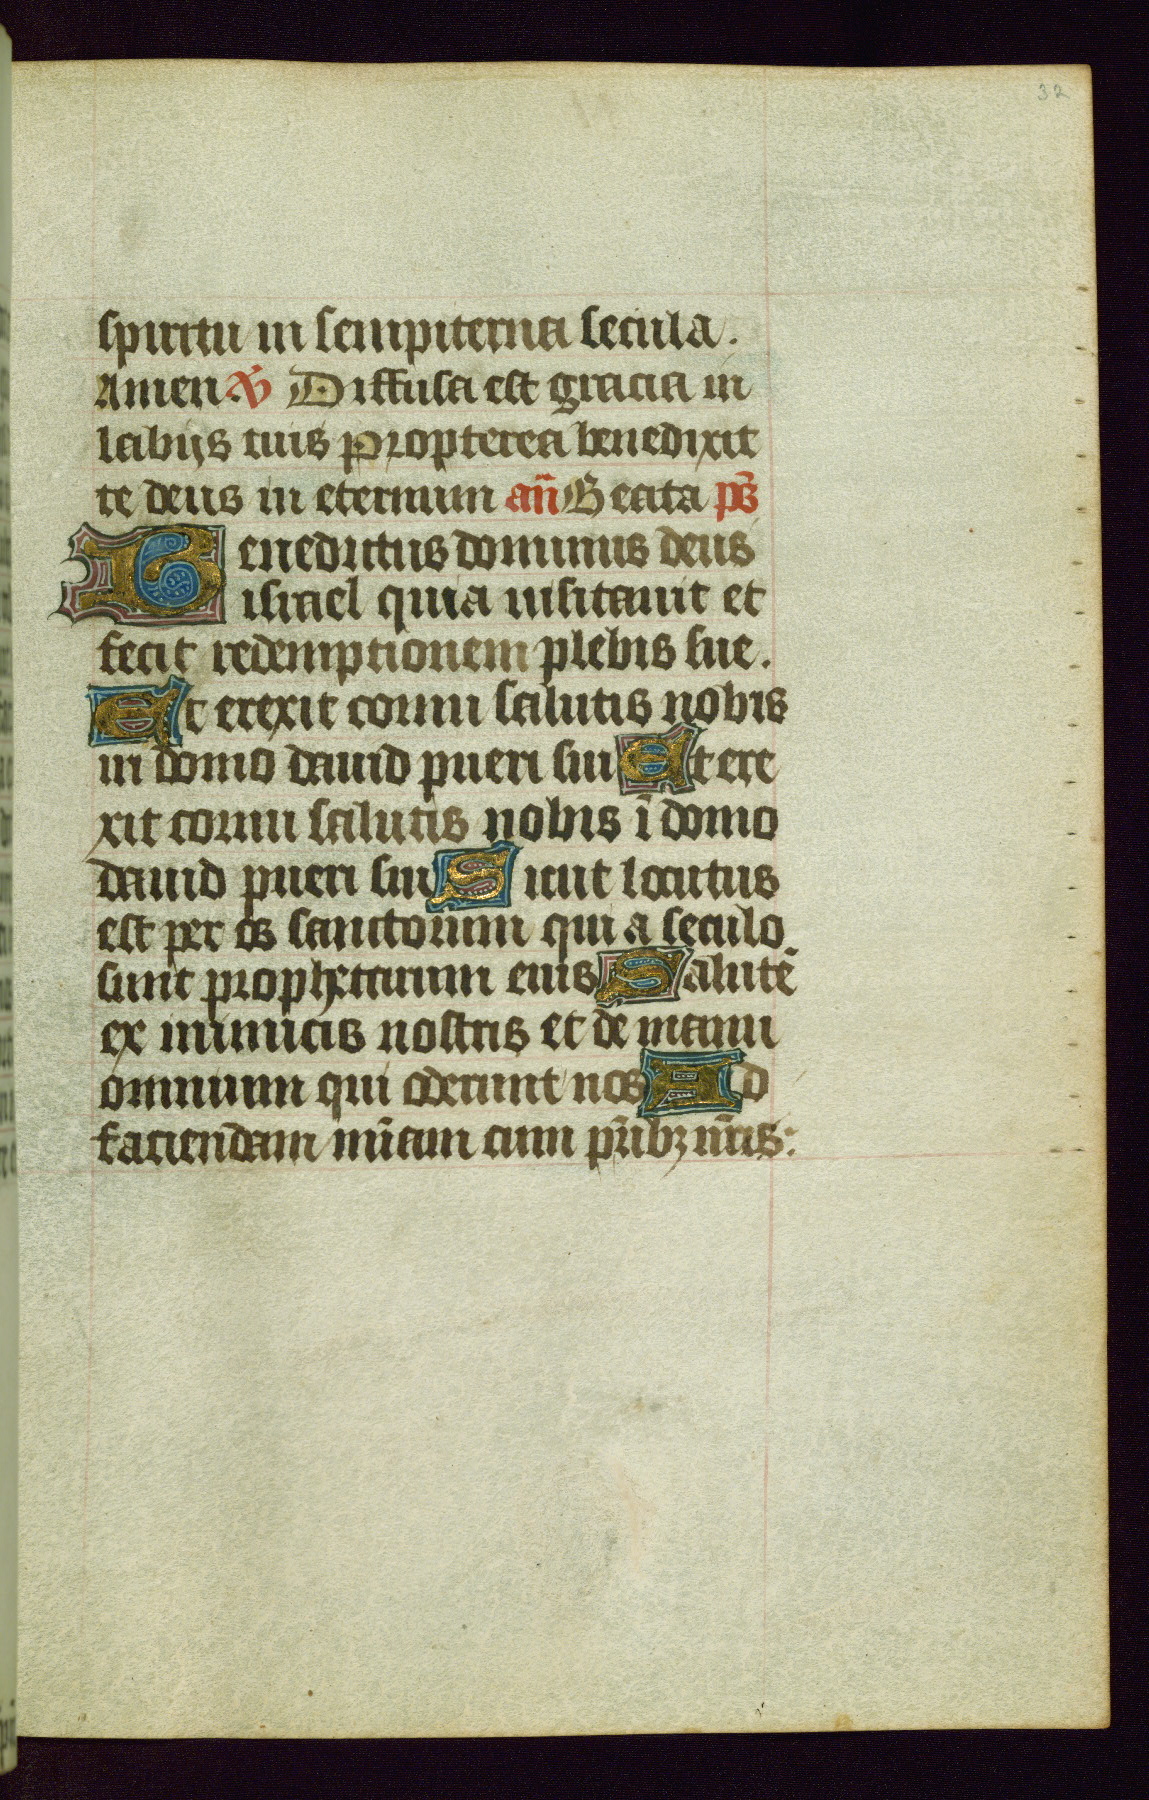 32
spiritu in sempiterna secula.
Amen. V̄ Diffusa est gracia in
labijs tuis Propterea benedixit
te deus in eternum an̄ Beata ps̄
Benedictus dominus deus
israel quia visitauit et
fecit redemptionem plebis sue.
Et erexit cornu salutis nobis
in domo dauid pueri sui Et ere
xit cornu salutis nobis ī domo
dauid pueri sui Sicut locutus
est per os sanctorum qui a seculo
sunt prophetarum eius Salutē
ex inimicis nostris et de manu
omnium qui oderunt nos Ad
faciendam mīam cum pr̄ibꝫ nr̄is: